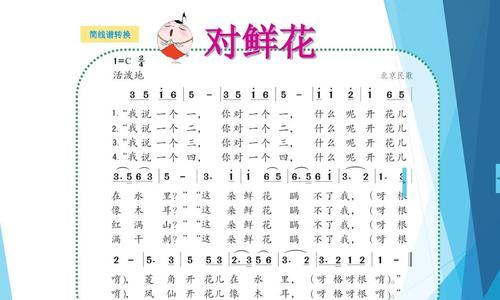 简线谱转换
对鲜花
1=C 2/4
活泼地
北京民歌
3 5 i 5 | 3 5 i 5 | i i 2 | i 6 5
1. “我 说 一 个 一， 你 对 一 个 一， 什 么 呢 开 花儿
2. “我 说 一 个 二， 你 对 一 个 二， 什 么 呢 开 花儿
3. “我 说 一 个 三， 你 对 一 个 三， 什 么 呢 开 花儿
4. “我 说 一 个 四， 你 对 一 个 四， 什 么 呢 开 花儿
在 水 里？” “这 朵 鲜 花 瞒 不 了 我，（呀 根
像 木 耳？” “这 朵 鲜 花 瞒 不 了 我，（呀 根
红 满 山？” “这 朵 鲜 花 瞒 不 了 我，（呀 根
满 干 刺？” “这 朵 鲜 花 瞒 不 了 我，（呀 根
唷）， 菱 角 开 花儿 在 水 里 （呀 格 呀根 唷）。”
唷）， 凤 仙 开 花儿 像 木 耳 （呀 格 呀根 唷）。”